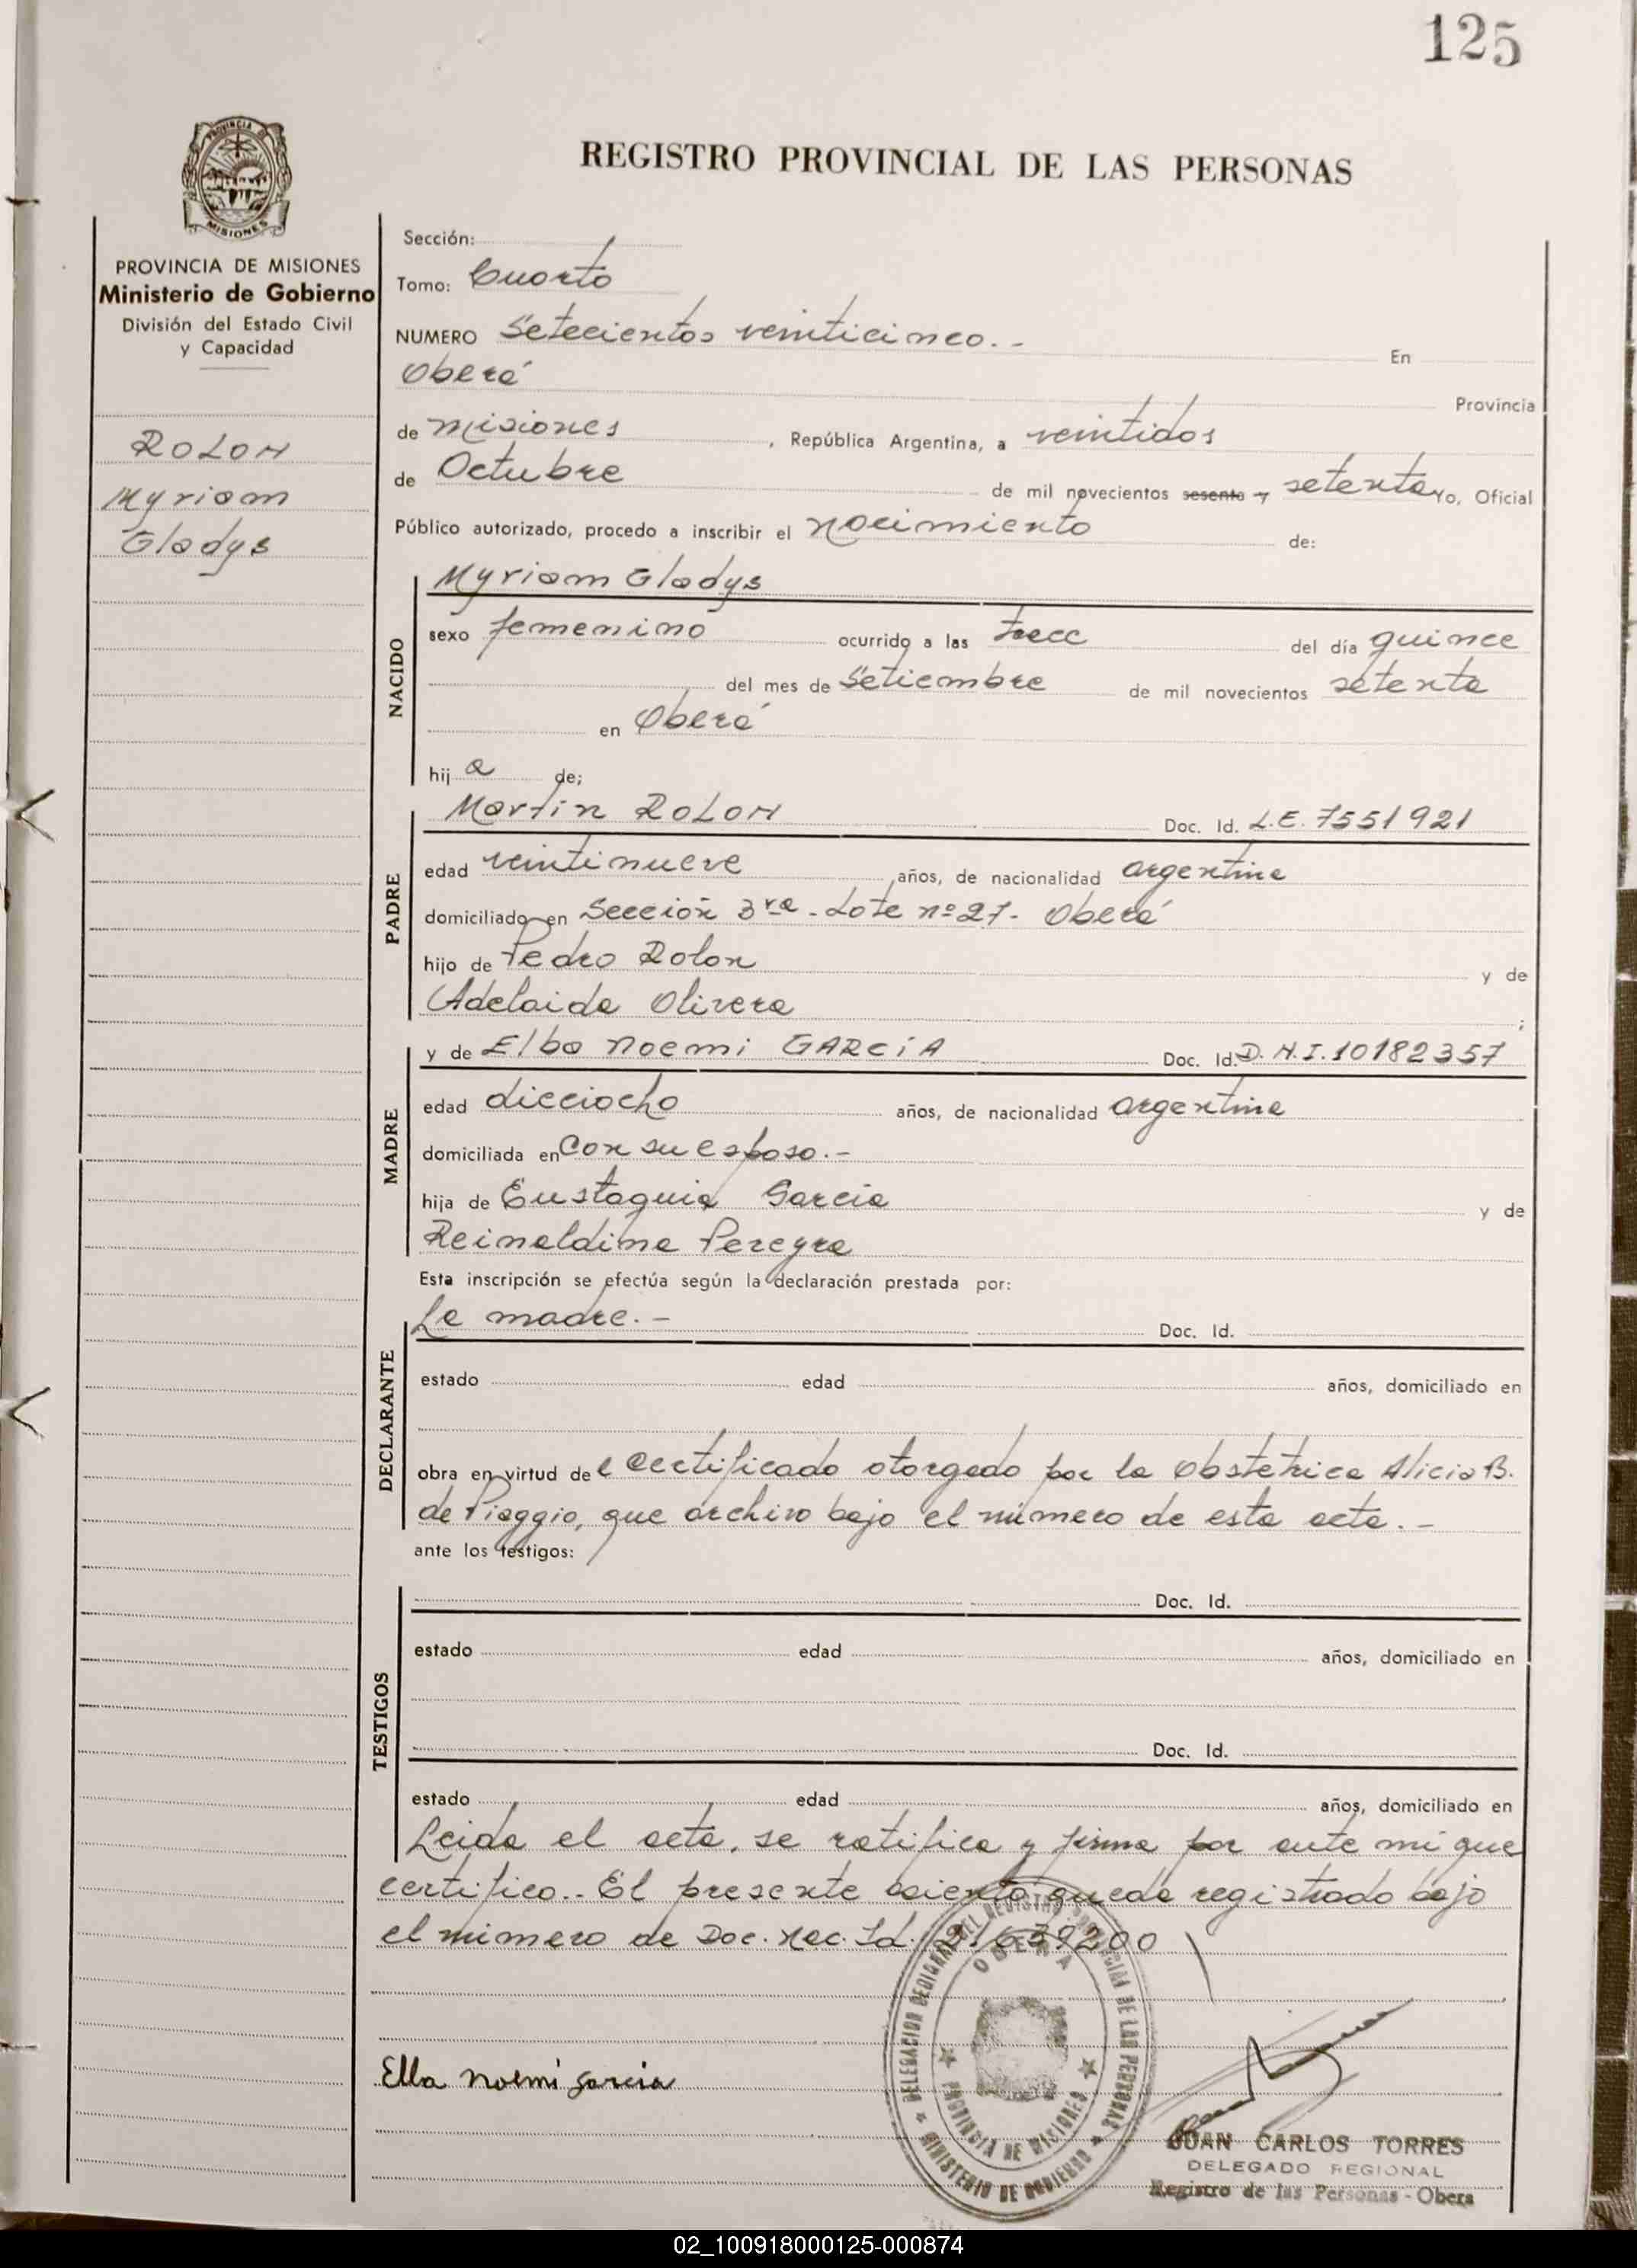 125
PROVINCIA DE
MISIONES
REGISTRO PROVINCIAL DE LAS PERSONAS
PROVINCIA DE MISIONES
Ministerio de Gobierno
División del Estado Civil
y Capacidad
ROLON
Myriam
Gladys
Sección:
Tomo: Cuarto
NUMERO Setecientos veinticinco.- En
Oberá Provincia
de Misiones, República Argentina, a veintidos
de Octubre de mil novecientos sesenta y setenta Yo, Oficial
Público autorizado, procedo a inscribir el nacimiento de:
NACIDO
Myriam Gladys
sexo femenino ocurrido a las trece del día quince
del mes de Setiembre de mil novecientos setenta
en Oberá
hija de;
PADRE
Martín ROLON Doc. Id. L.E. 7551921
edad veintinueve años, de nacionalidad argentina
domiciliado en Sección 3ra - Lote nº 27 - Oberá
hijo de Pedro Rolon y de
Adelaida Olivera ;
MADRE
y de Elba Noemi GARCÍA Doc. Id. D.N.I. 10182357
edad dieciocho años, de nacionalidad argentina
domiciliada en Con su esposo.-
hija de Eustaquia García y de
Reinaldina Pereyra
Esta inscripción se efectúa según la declaración prestada por:
DECLARANTE
La madre.- Doc. Id.
estado edad años, domiciliado en
obra en virtud del certificado otorgado por la Obstetrica Alicia B.
de Piaggio, que archivo bajo el número de esta acta.-
ante los testigos:
TESTIGOS
Doc. Id.
estado edad años, domiciliado en
Doc. Id.
estado edad años, domiciliado en
Leida el acta, se ratifica y firma por ante mi que
certifico.- El presente asiento queda registrado bajo
el número de Doc. Nac. Id. 21639200
DELEGACION REGIONAL DEL REGISTRO PROVINCIAL DE LAS PERSONAS
OBERA
PROVINCIA DE MISIONES
MINISTERIO DE GOBIERNO
Elba Noemí Garcia
JUAN CARLOS TORRES
DELEGADO REGIONAL
Registro de las Personas - Obera
02_100918000125-000874